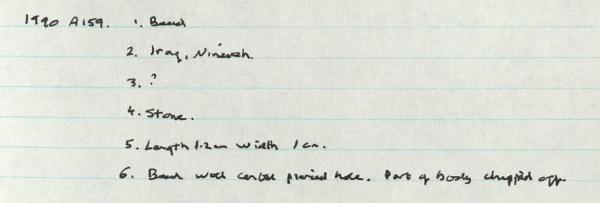 1990 A159. 1. Bead
2. Iraq, Nineveh.
3. ?
4. Stone.
5. Length 1.2cm Width 1cm.
6. Bead with central pierced hole. Part of body chipped off.